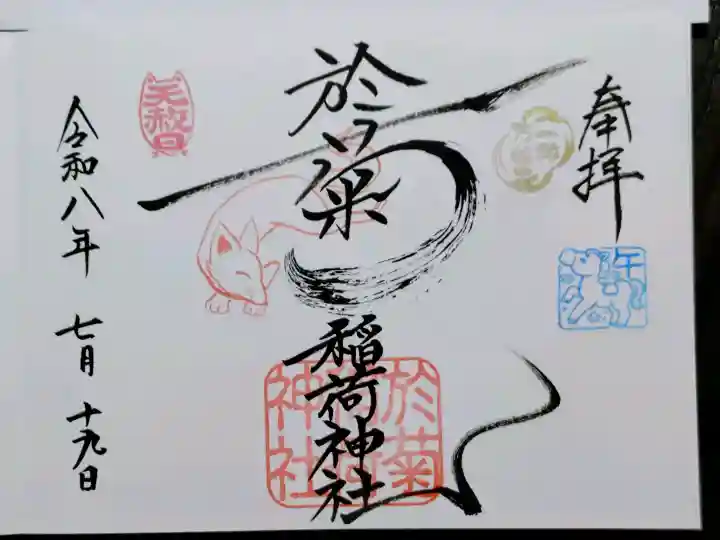 奉拝
午
於菊
稲荷神社
於菊稲荷神社
令和八年 七月 十九日